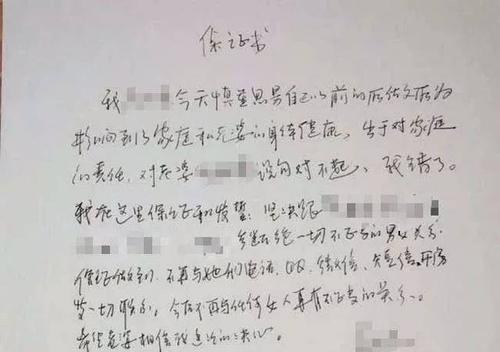 保证书
我 今天慎重思量自己以前的所做所为
影响到了家庭和老婆的身体健康,出于对家庭
的责任,对老婆 说句对不起,我错了。
我在这里保证和发誓:坚决跟
断绝一切不正当的男女关系
保证做到不再与她们电话、QQ、微信、短信、开房
等一切联系,今后不再与任何女人再有不正当的关系。
希望老婆相信我这次的决心。